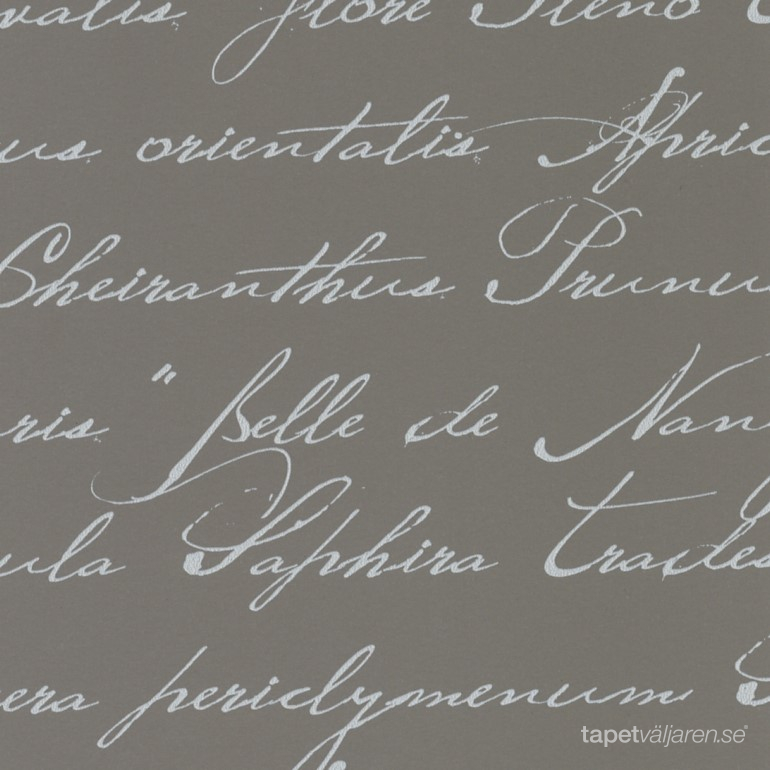 valis flore Pleno
us orientalis Apric
Cheiranthus Prunu
ris "Belle de Nan
ula Saphira Trades
era periclymenum
tapetväljaren.se